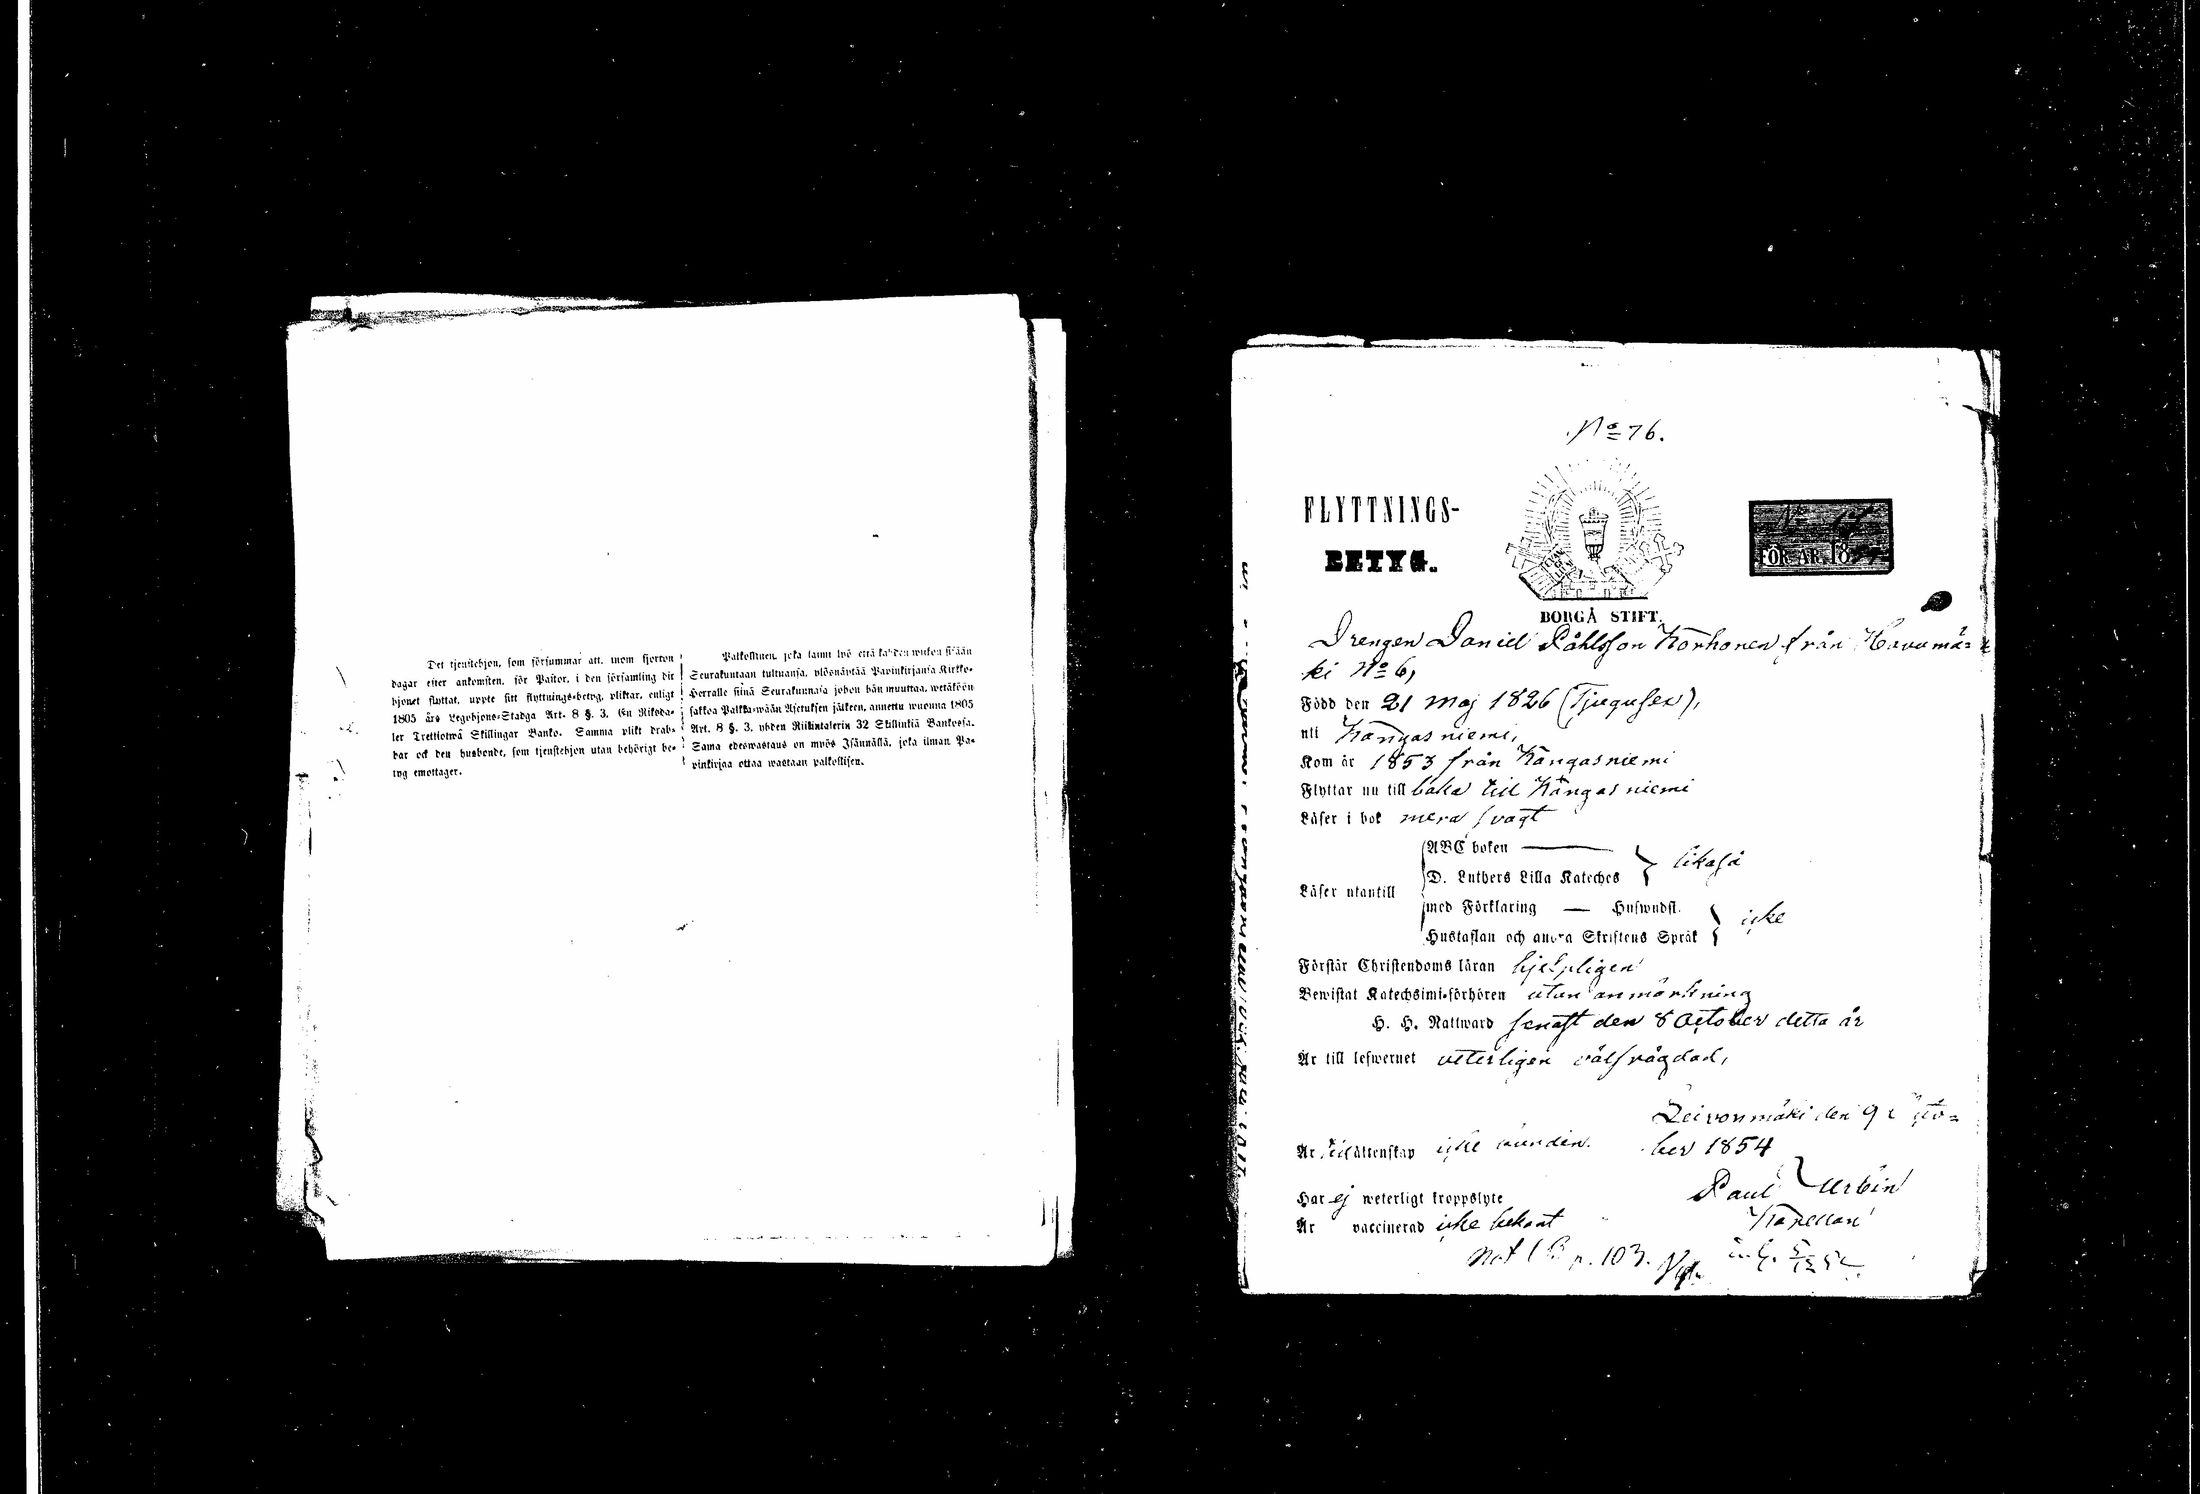 Det tjenstehjon, som försummar att, inom fjorton
dagar efter ankomsten, för Pastor, i den församling dit
hjonet flyttat, uppte sitt flyttnings-betyg, pliktar, enligt
1805 års Legohjons-Stadga Art. 8 §. 3, En Riksda-
ler Trettiotwå Skillingar Banko. Samma plikt drab-
bar ock den husbonde, som tjenstehjon utan behörigt be-
tyg emottager.
Palkollinen, joka laimi lyö että kahden wiikon sisään
Seurakuntaan tultuansa, ylösnäyttää Papinkirjansa Kirkko-
Herralle siinä Seurakunnasa johon hän muuttaa, wetäköön
sakkoa Palkka-wään Asetuksen jälkeen, annettu wuonna 1805
Art. 8 §. 3, yhden Riikintalerin 32 Skillinkiä Bankossa.
Sama edeswastaus on myös Isännällä, joka ilman Pa-
pinkirjaa ottaa wastaan palkollisen.
No 76.
FLYTTNINGS-
BETYG.
No 17
FÖR ÅR 18
BORGÅ STIFT.
Drengen Daniel Påhlsson Korhonen från Havumä-
ki No 6,
Född den 21 Maj 1826 (Tjugusex),
uti Kangasniemi,
Kom år 1853 från Kangasniemi
Flyttar nu till baka till Kangasniemi
Läser i bok mera svagt
ABC boken
D. Luthers Lilla Kateches
likaså
Läser utantill
med Förklaring — Huswudst.
Hustaflan och andra Skriftens Språk
icke
Förstår Christendoms läran hjelpligen
Bewistat Katechsimi-förhören utan anmärkning
H. H. Nattward senast den 8 October detta år
Är till lefwernet veterligen välfrägdad,
Leivonmäki den 9 Octo-
Är till ächtenskap icke bunden.
ber 1854
Har ej weterligt kroppslyte
Paul Urbin
Är vaccinerad icke bekant
Kapellan
p. 103.